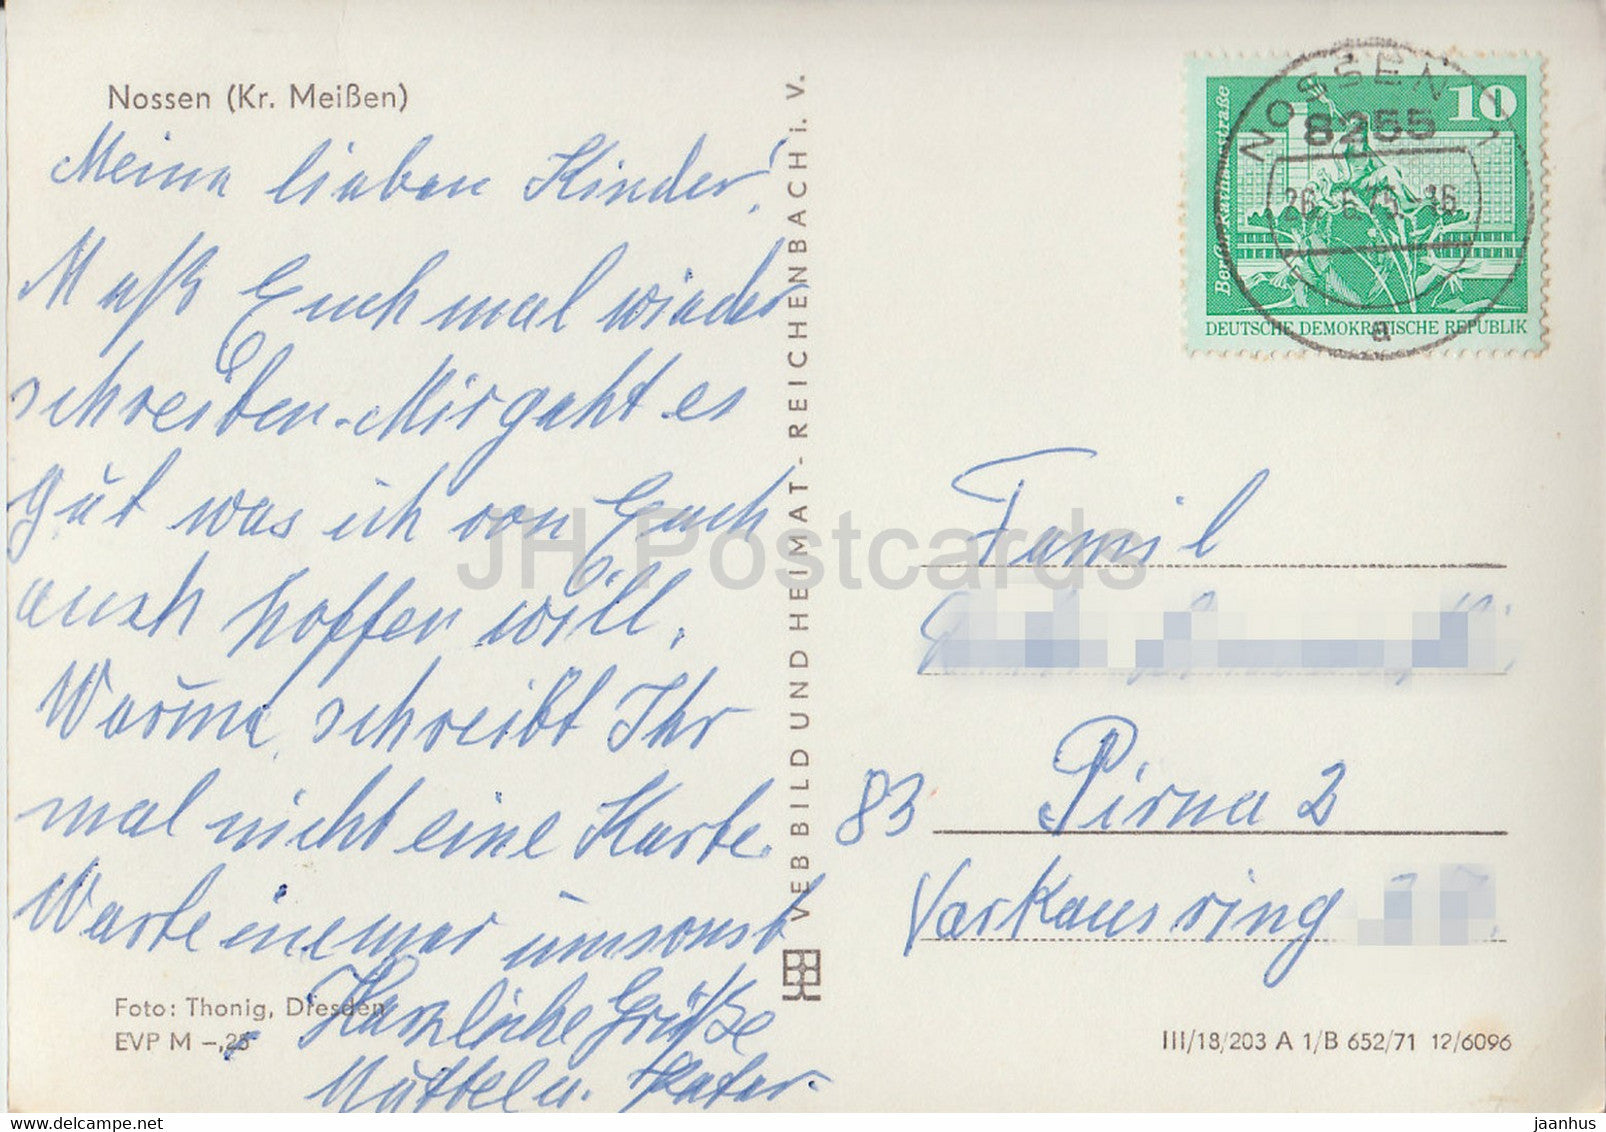 Nossen (Kr. Meißen)
Meine lieben Kinder!
Muß Euch mal wieder
schreiben. Mir geht es
gut was ich von Euch
auch hoffen will.
Warum schreibt Ihr
mal nicht eine Karte.
Warte immer umsonst
Herzliche Grüße
Mutter u. Vater.
Foto: Thonig, Dresden
EVP M –,25
VEB BILD UND HEIMAT - REICHENBACH i. V.
NOSSEN 1
8255
26. 6.75.-16
a
10
Berlin, Rathausstraße
DEUTSCHE DEMOKRATISCHE REPUBLIK
Famil
83 Pirna 2
Varkausring
III/18/203 A 1/B 652/71 12/6096
JH Postcards
HipPostcard.com
jaanhus